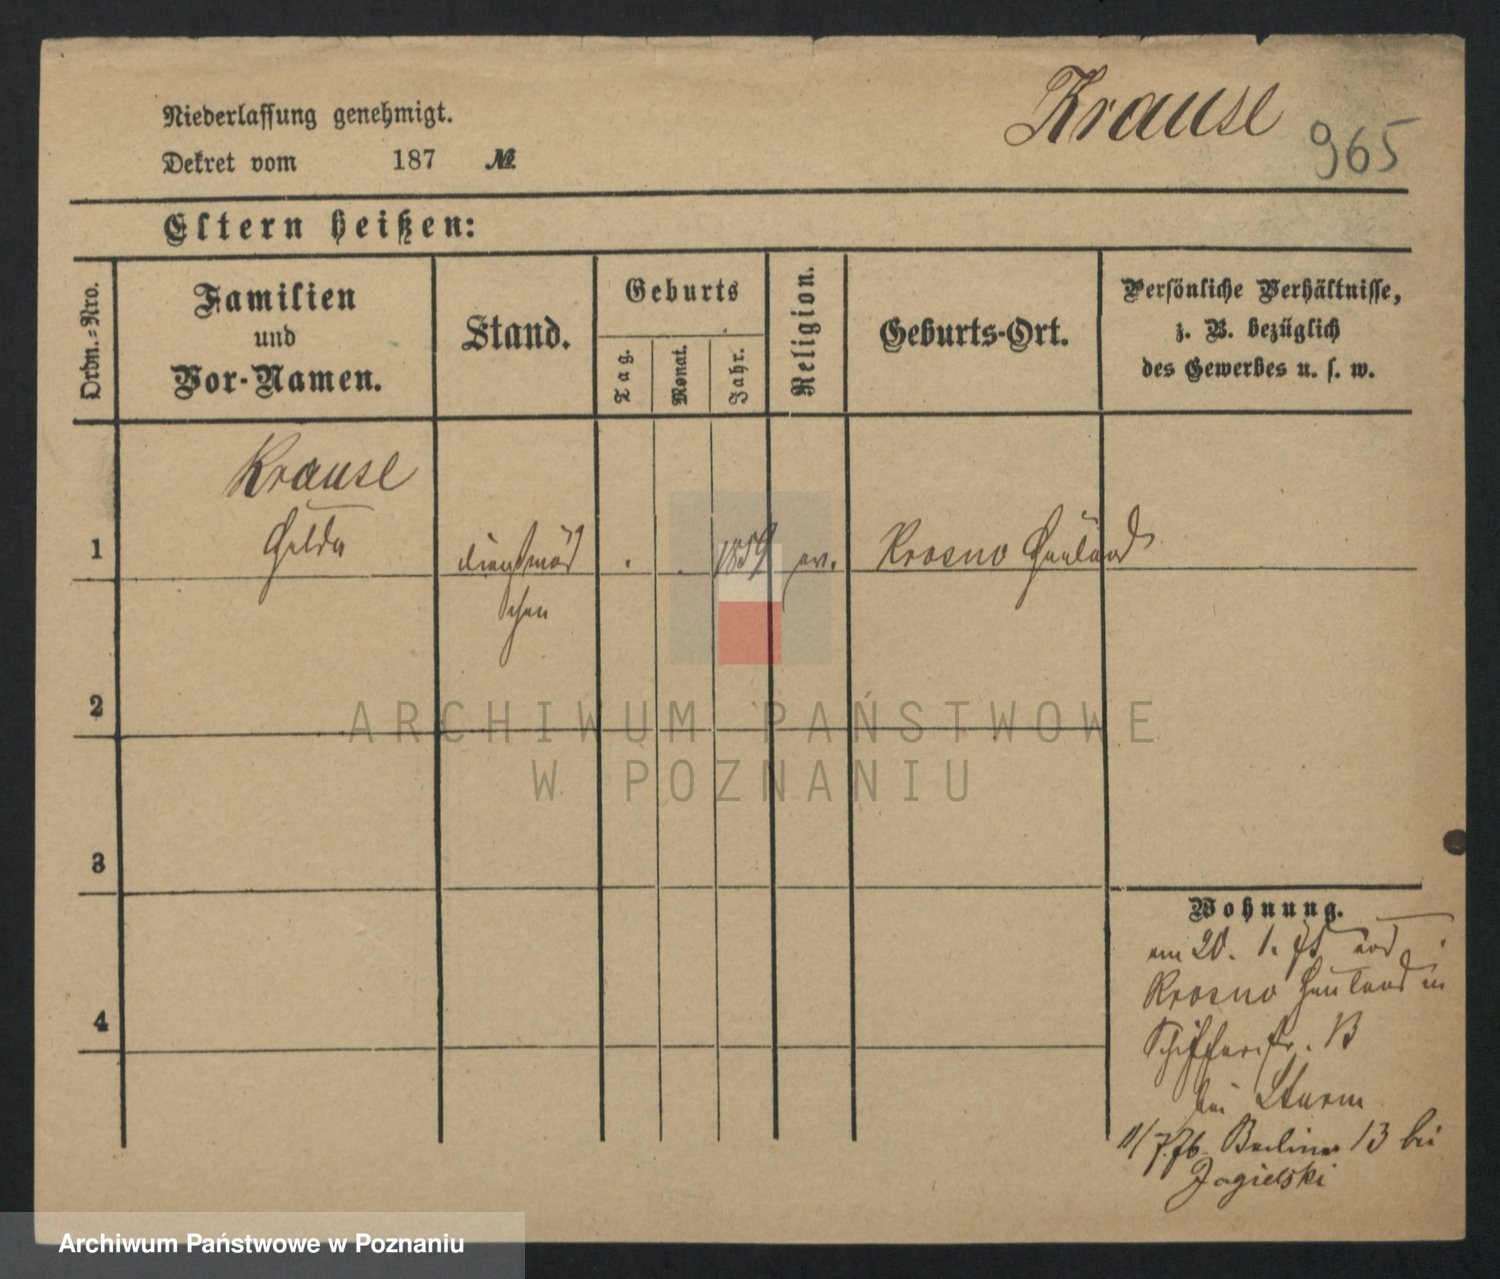 Krause 965
Niederlassung genehmigt.
Dekret vom 187 №
Eltern heißen:
Ordn.=Nro.
Familien
und
Vor-Namen.
Stand.
Geburts
Tag.
Monat.
Jahr.
Religion.
Geburts-Ort.
Persönliche Verhältnisse,
z. B. bezüglich
des Gewerbes u. s. w.
Krause
1 Hulda dienstmäd 1859 ev. Krosno Hauland
chen
2
3
4
Wohnung.
am 20. 1. 75 aus
Krosno Hauland in
Schifferstr. 13
bei Sturm
11/7.76. Berliner 13 bei
Jagielski
ARCHIWUM PAŃSTWOWE
W POZNANIU
Archiwum Państwowe w Poznaniu